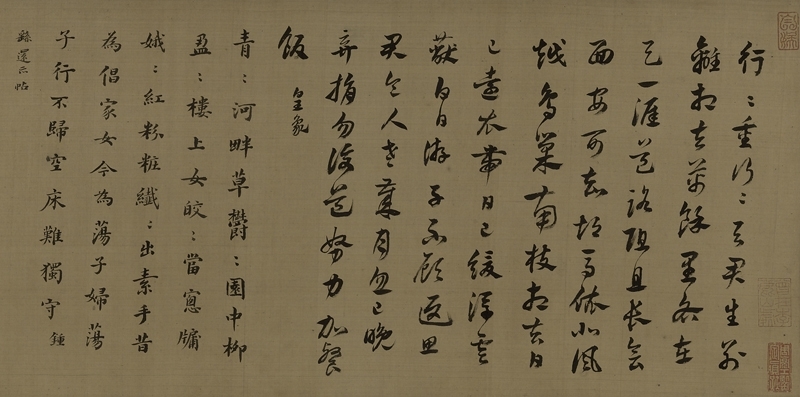 行〻重行〻与君生別
離相去萬餘里各在
天一涯道路阻且長會
面安可知胡馬依北風
越鳥巢南枝相去日
已遠衣帶日已緩浮雲
蔽白日游子不顧返思
君令人老歲月忽已晚
棄捐勿復道努力加餐
飯 皇象
青〻河畔草鬱〻園中柳
盈〻樓上女皎〻當窻牖
娥〻紅粉粧纖〻出素手昔
為倡家女今為蕩子婦蕩
子行不歸空床難獨守 鍾
繇還示帖